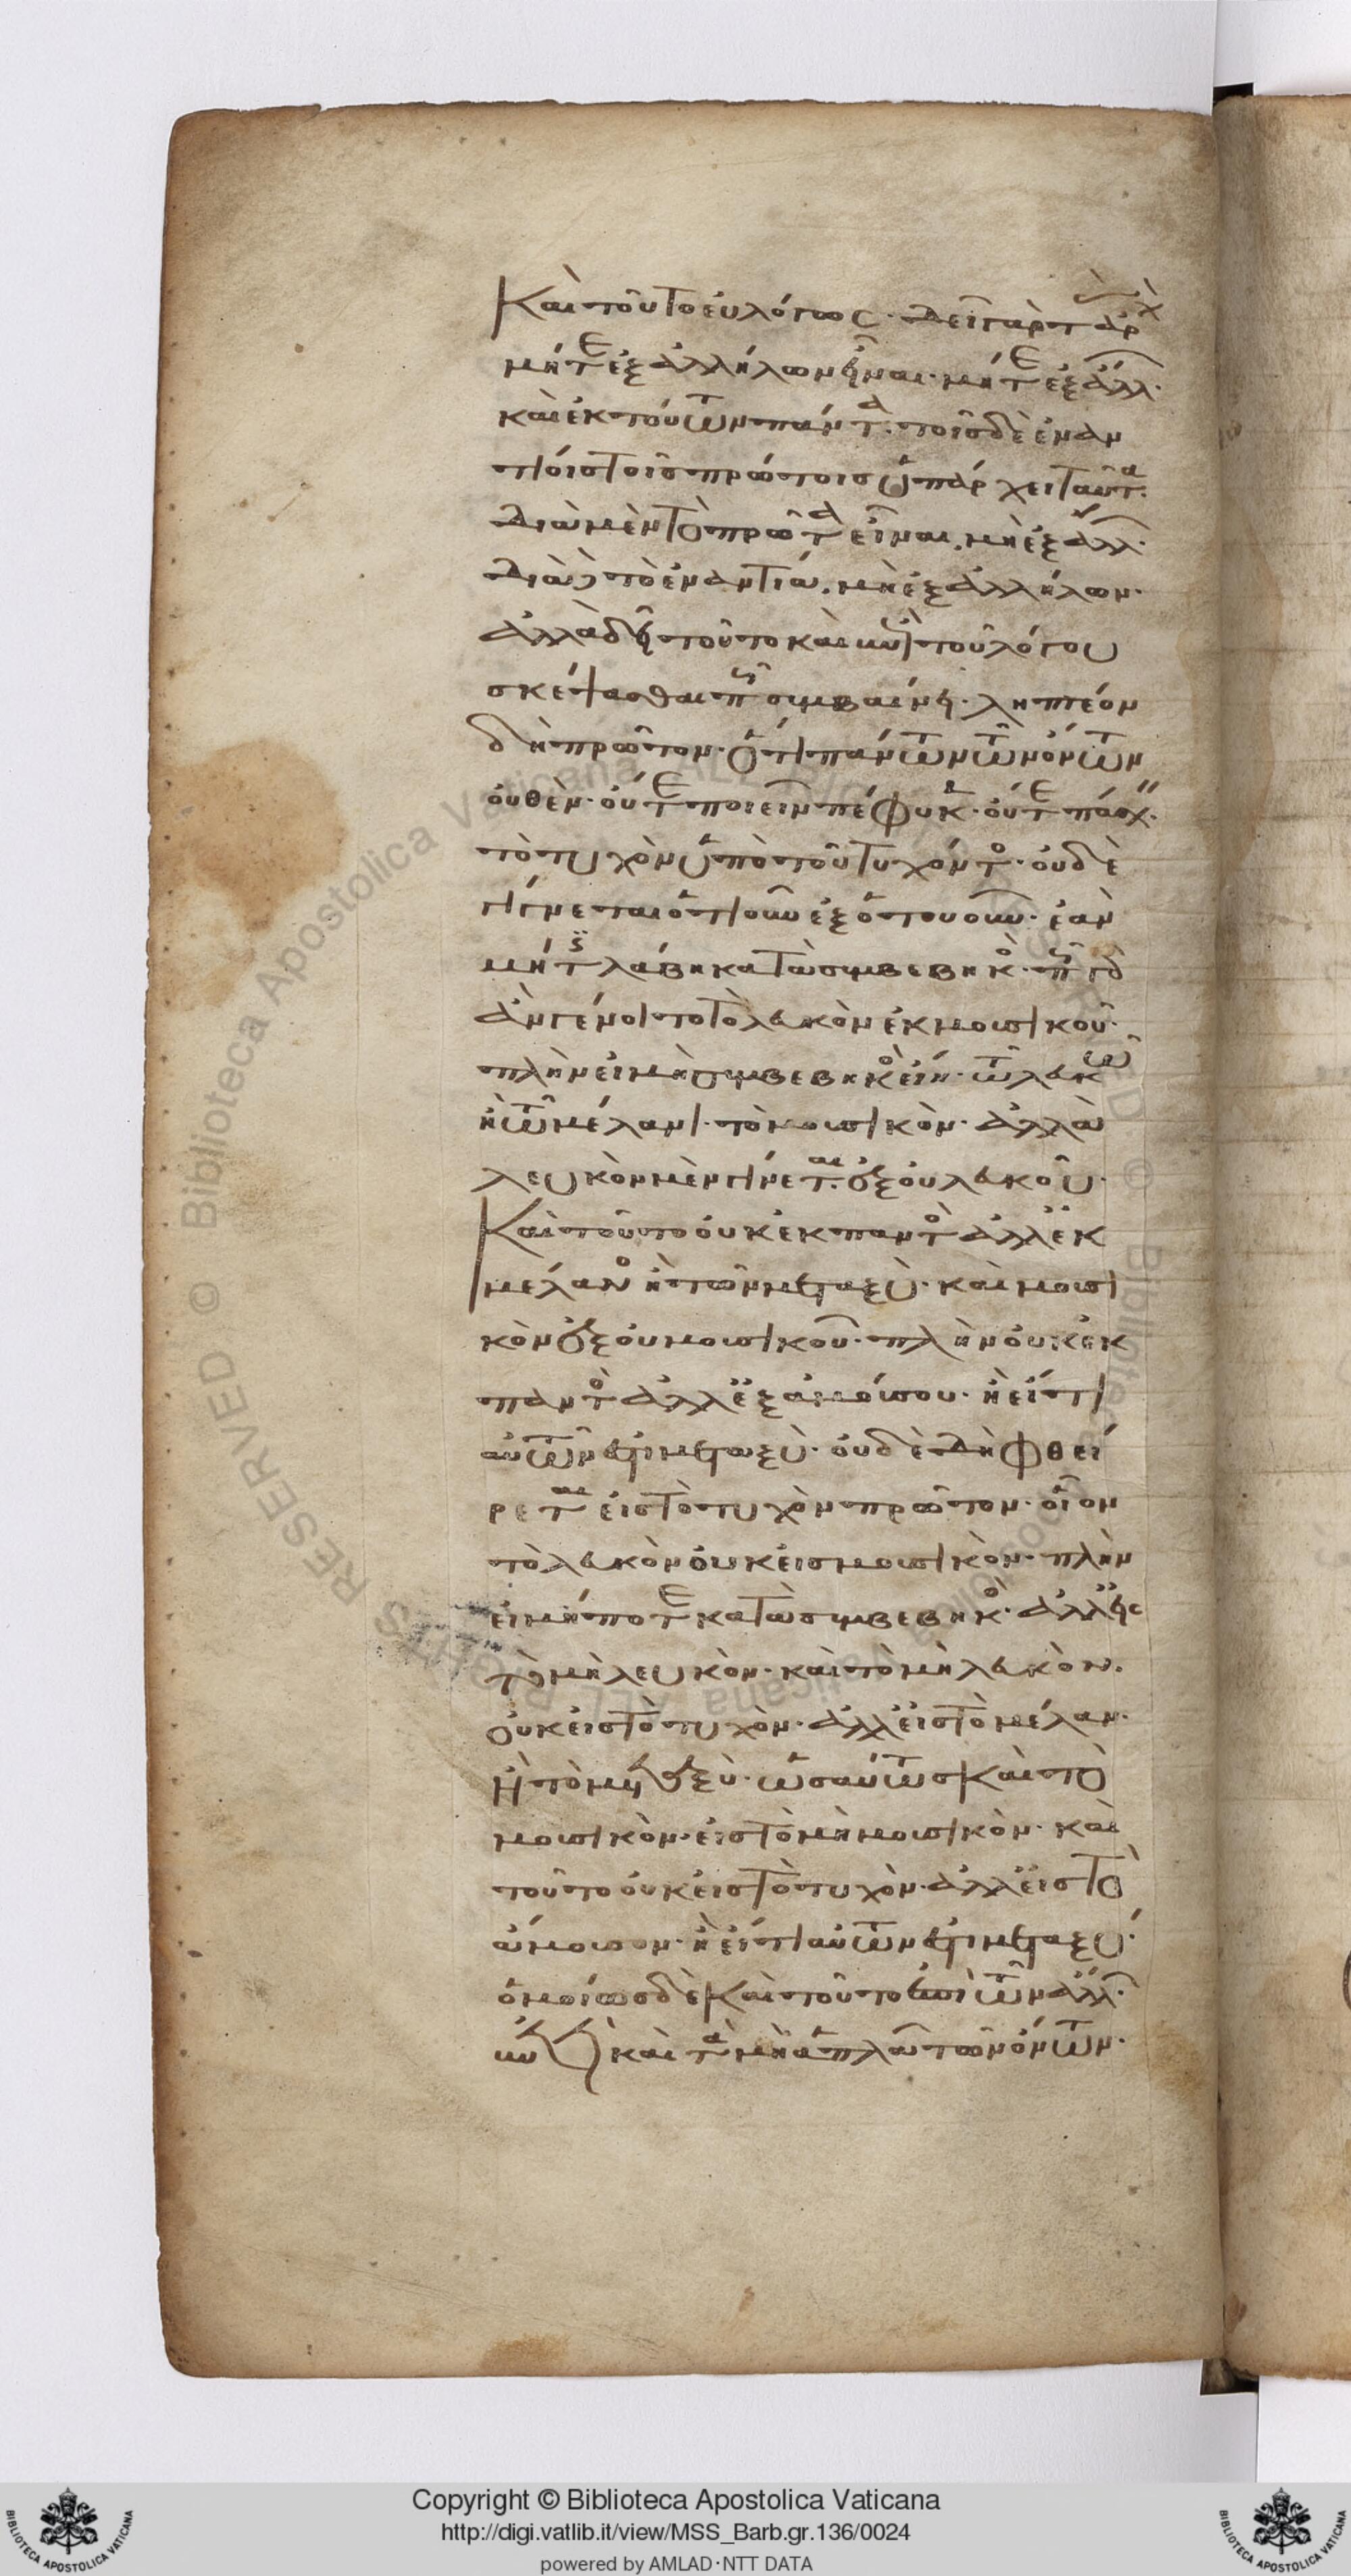 Καὶ τοῦτο εὐλόγως· δεῖ γὰρ τ(ὰς) ἀρχ(ὰς)
μήτε ἐξ ἀλλήλων εἶναι· μήτε ἐξ ἄλλ(ων)·
καὶ ἐκ τούτων πάντα· τοῖς δὲ ἐναν
τίοις τοῖς πρώτοις ὑπάρχει ταῦτα·
διὰ μὲν τὸ πρῶτα εἶναι, μὴ ἐξ ἄλλ(ων)·
διὰ δὲ τὸ ἐναντία, μὴ ἐξ ἀλλήλων·
ἀλλὰ δεῖ τοῦτο καὶ ἐπὶ τοῦ λόγου
σκέψασθαι πῶς συμβαίνει· ληπτέον
δὴ πρῶτον· ὅτι πάντων τῶν ὄντων
οὐθὲν· οὔτε ποιεῖν πέφυκ(εν)· οὔτε πάσχ(ειν)·
τὸ τυχὸν ὑπὸ τοῦ τυχόντο(ς)· οὐδὲ
γίνεται ὁτιοῦν ἐξ ὁτουοῦν· ἐὰν
μή τ(ις) λάβη κατὰ συμβεβηκό(ς)· πῶς γ(ὰρ)
ἂν γένοιτο τὸ λευκὸν ἐκ μουσικοῦ·
πλὴν εἰ μὴ συμβεβηκὸ(ς) εἴη· τῶ λευκῶ
ἢ τῶ μέλανι· τὸ μουσικὸν· ἀλλὰ
λευκὸν μὲν γίνεται ἐξ οὐ λευκοῦ·
Καὶ τούτου οὐκ ἐκ παντὸ(ς) ἀλλ' ἐκ
μέλανο(ς) ἢ τῶν μεταξύ· καὶ μουσι
κὸν ἐξ οὐ μουσικοῦ· πλὴν οὐκ ἐκ
παντὸ(ς) ἀλλ' ἐξ ἀμούσου· ἢ εἴ τι
αὐτῶν ἐστι μεταξύ· οὐδὲ δὴ φθεί
ρεται εἰς τὸ τυχὸν πρῶτον· οἷον
τὸ λευκὸν οὐκ εἰς μουσικὸν· πλὴν
εἰ μή ποτε κατὰ συμβεβηκό(ς)· ἀλλ' εἰς
τὸ μὴ λευκὸν· καὶ τὸ μὴ λευκὸν.
οὐκ εἰς τὸ τυχὸν· ἀλλ' εἰς τὸ μέλαν·
ἢ τὸ μεταξὺ· ὡσαύτως καὶ τὸ
μουσικὸν· εἰς τὸ μὴ μουσικὸν· καὶ
τοῦτο οὐκ εἰς τὸ τυχὸν· ἀλλ' εἰς τὸ
ἄμουσον· ἢ εἴ τι αὐτῶν ἐστι μεταξύ·
ὁμοίως δὲ καὶ τοῦτο ἐπὶ τῶν ἄλλ(ων)·
ἐπεὶ καὶ τὰ μὴ ἁπλᾶ τῶν ὄντων·
Copyright © Biblioteca Apostolica Vaticana
http://digi.vatlib.it/view/MSS_Barb.gr.136/0024
powered by AMLAD·NTT DATA